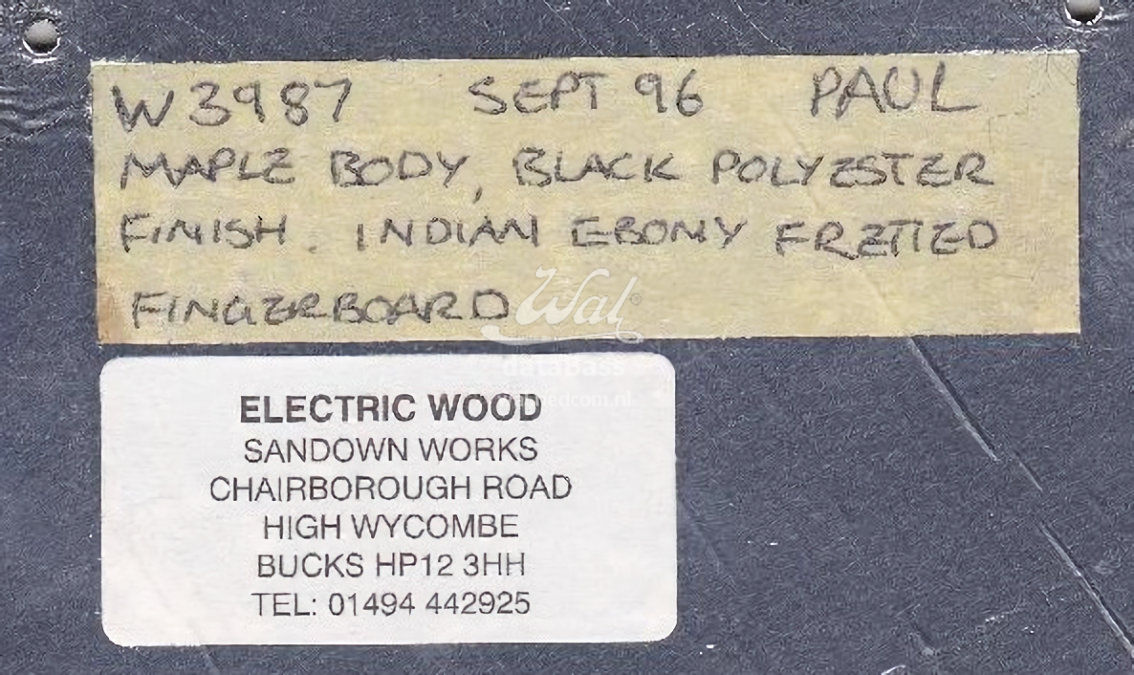 W3987 SEPT 96 PAUL
MAPLE BODY, BLACK POLYESTER
FINISH. INDIAN EBONY FRETTED
FINGERBOARD
Wal
dataBass
ELECTRIC WOOD
SANDOWN WORKS
CHAIRBOROUGH ROAD
HIGH WYCOMBE
BUCKS HP12 3HH
TEL: 01494 442925